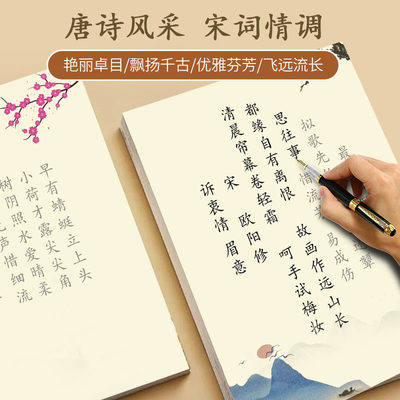 唐诗风采 宋词情调
艳丽卓目/飘扬千古/优雅芬芳/飞远流长
声惜细流
树阴照水爱晴柔
小荷才露尖尖角
早有蜻蜓立上头
诉衷情 眉意
宋 欧阳修
清晨帘幕卷轻霜
呵手试梅妆
都缘自有离恨
故画作远山长
思往事
易成伤
拟歌先
颦
最